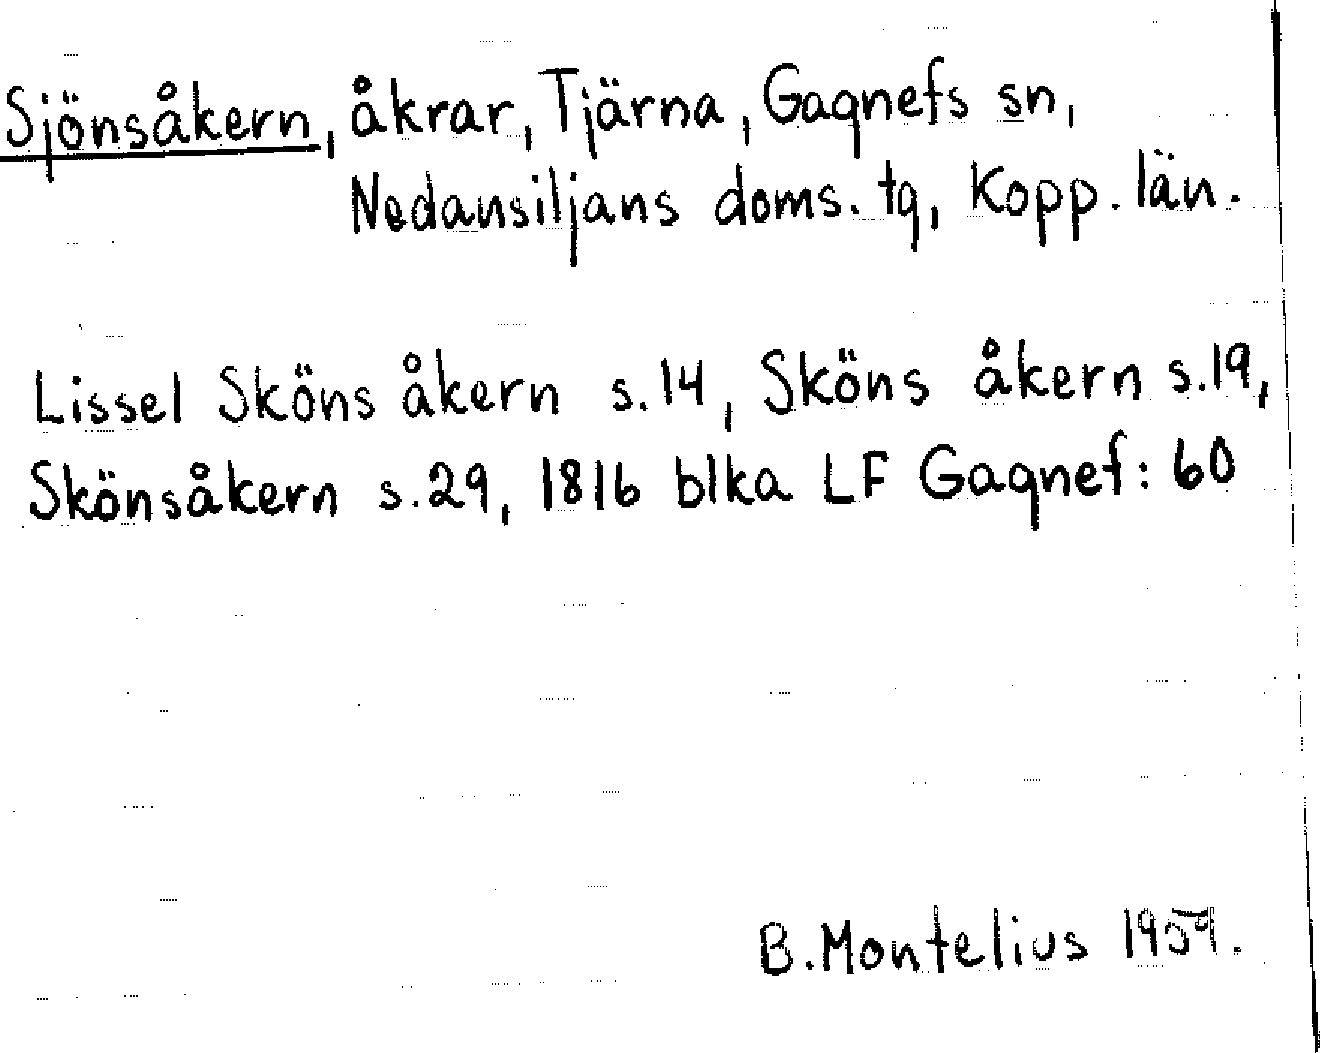 Sjönsåkern, åkrar, Tjärna, Gagnefs sn,
Nedansiljans doms. tg, Kopp. län.
Lissel Sköns åkern s.14, Sköns åkern s.19,
Skönsåkern s.29, 1816 blka LF Gagnef: 60
B. Montelius 1959.